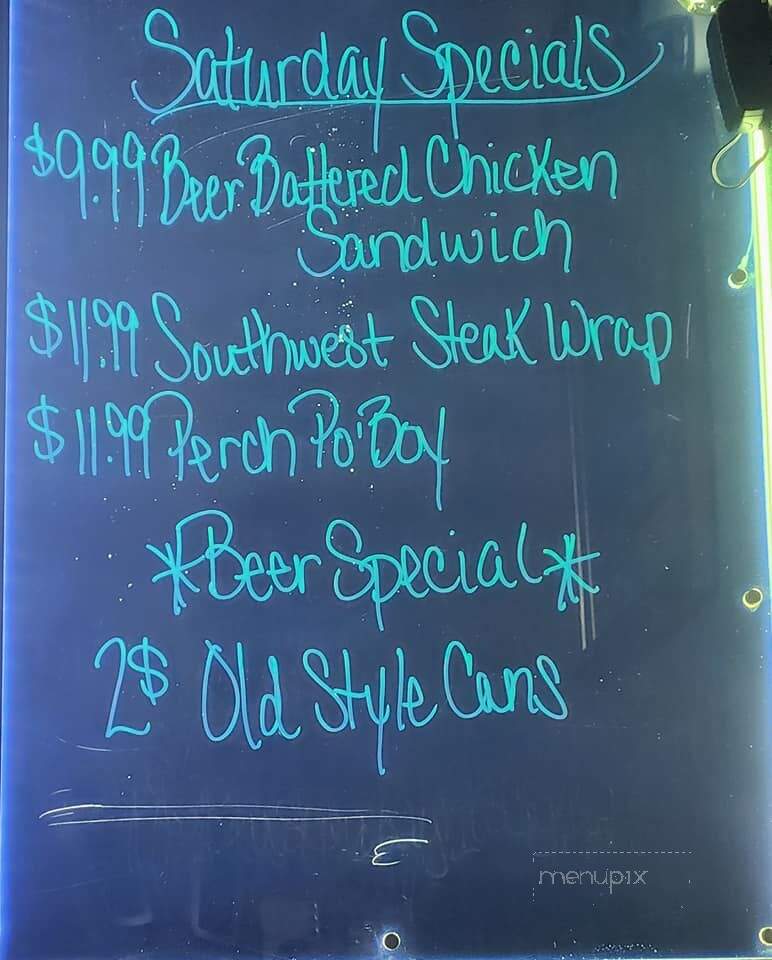 Saturday Specials
$9.99 Beer Battered Chicken
Sandwich
$11.99 Southwest Steak Wrap
$11.99 Perch Po'Boy
*Beer Special*
2$ Old Style Cans
menupix